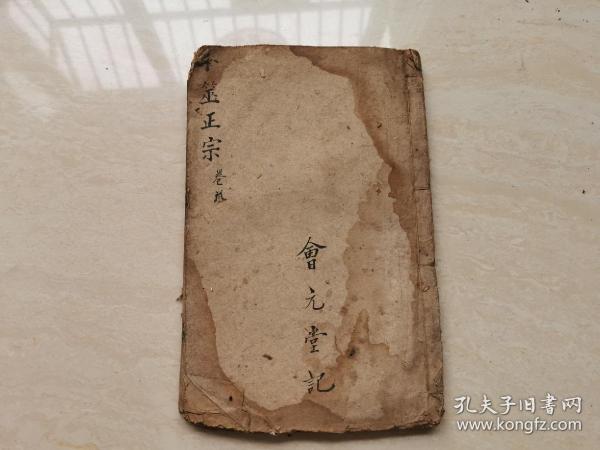 卜筮正宗
卷
會元堂記
孔夫子旧书网
www.kongfz.com